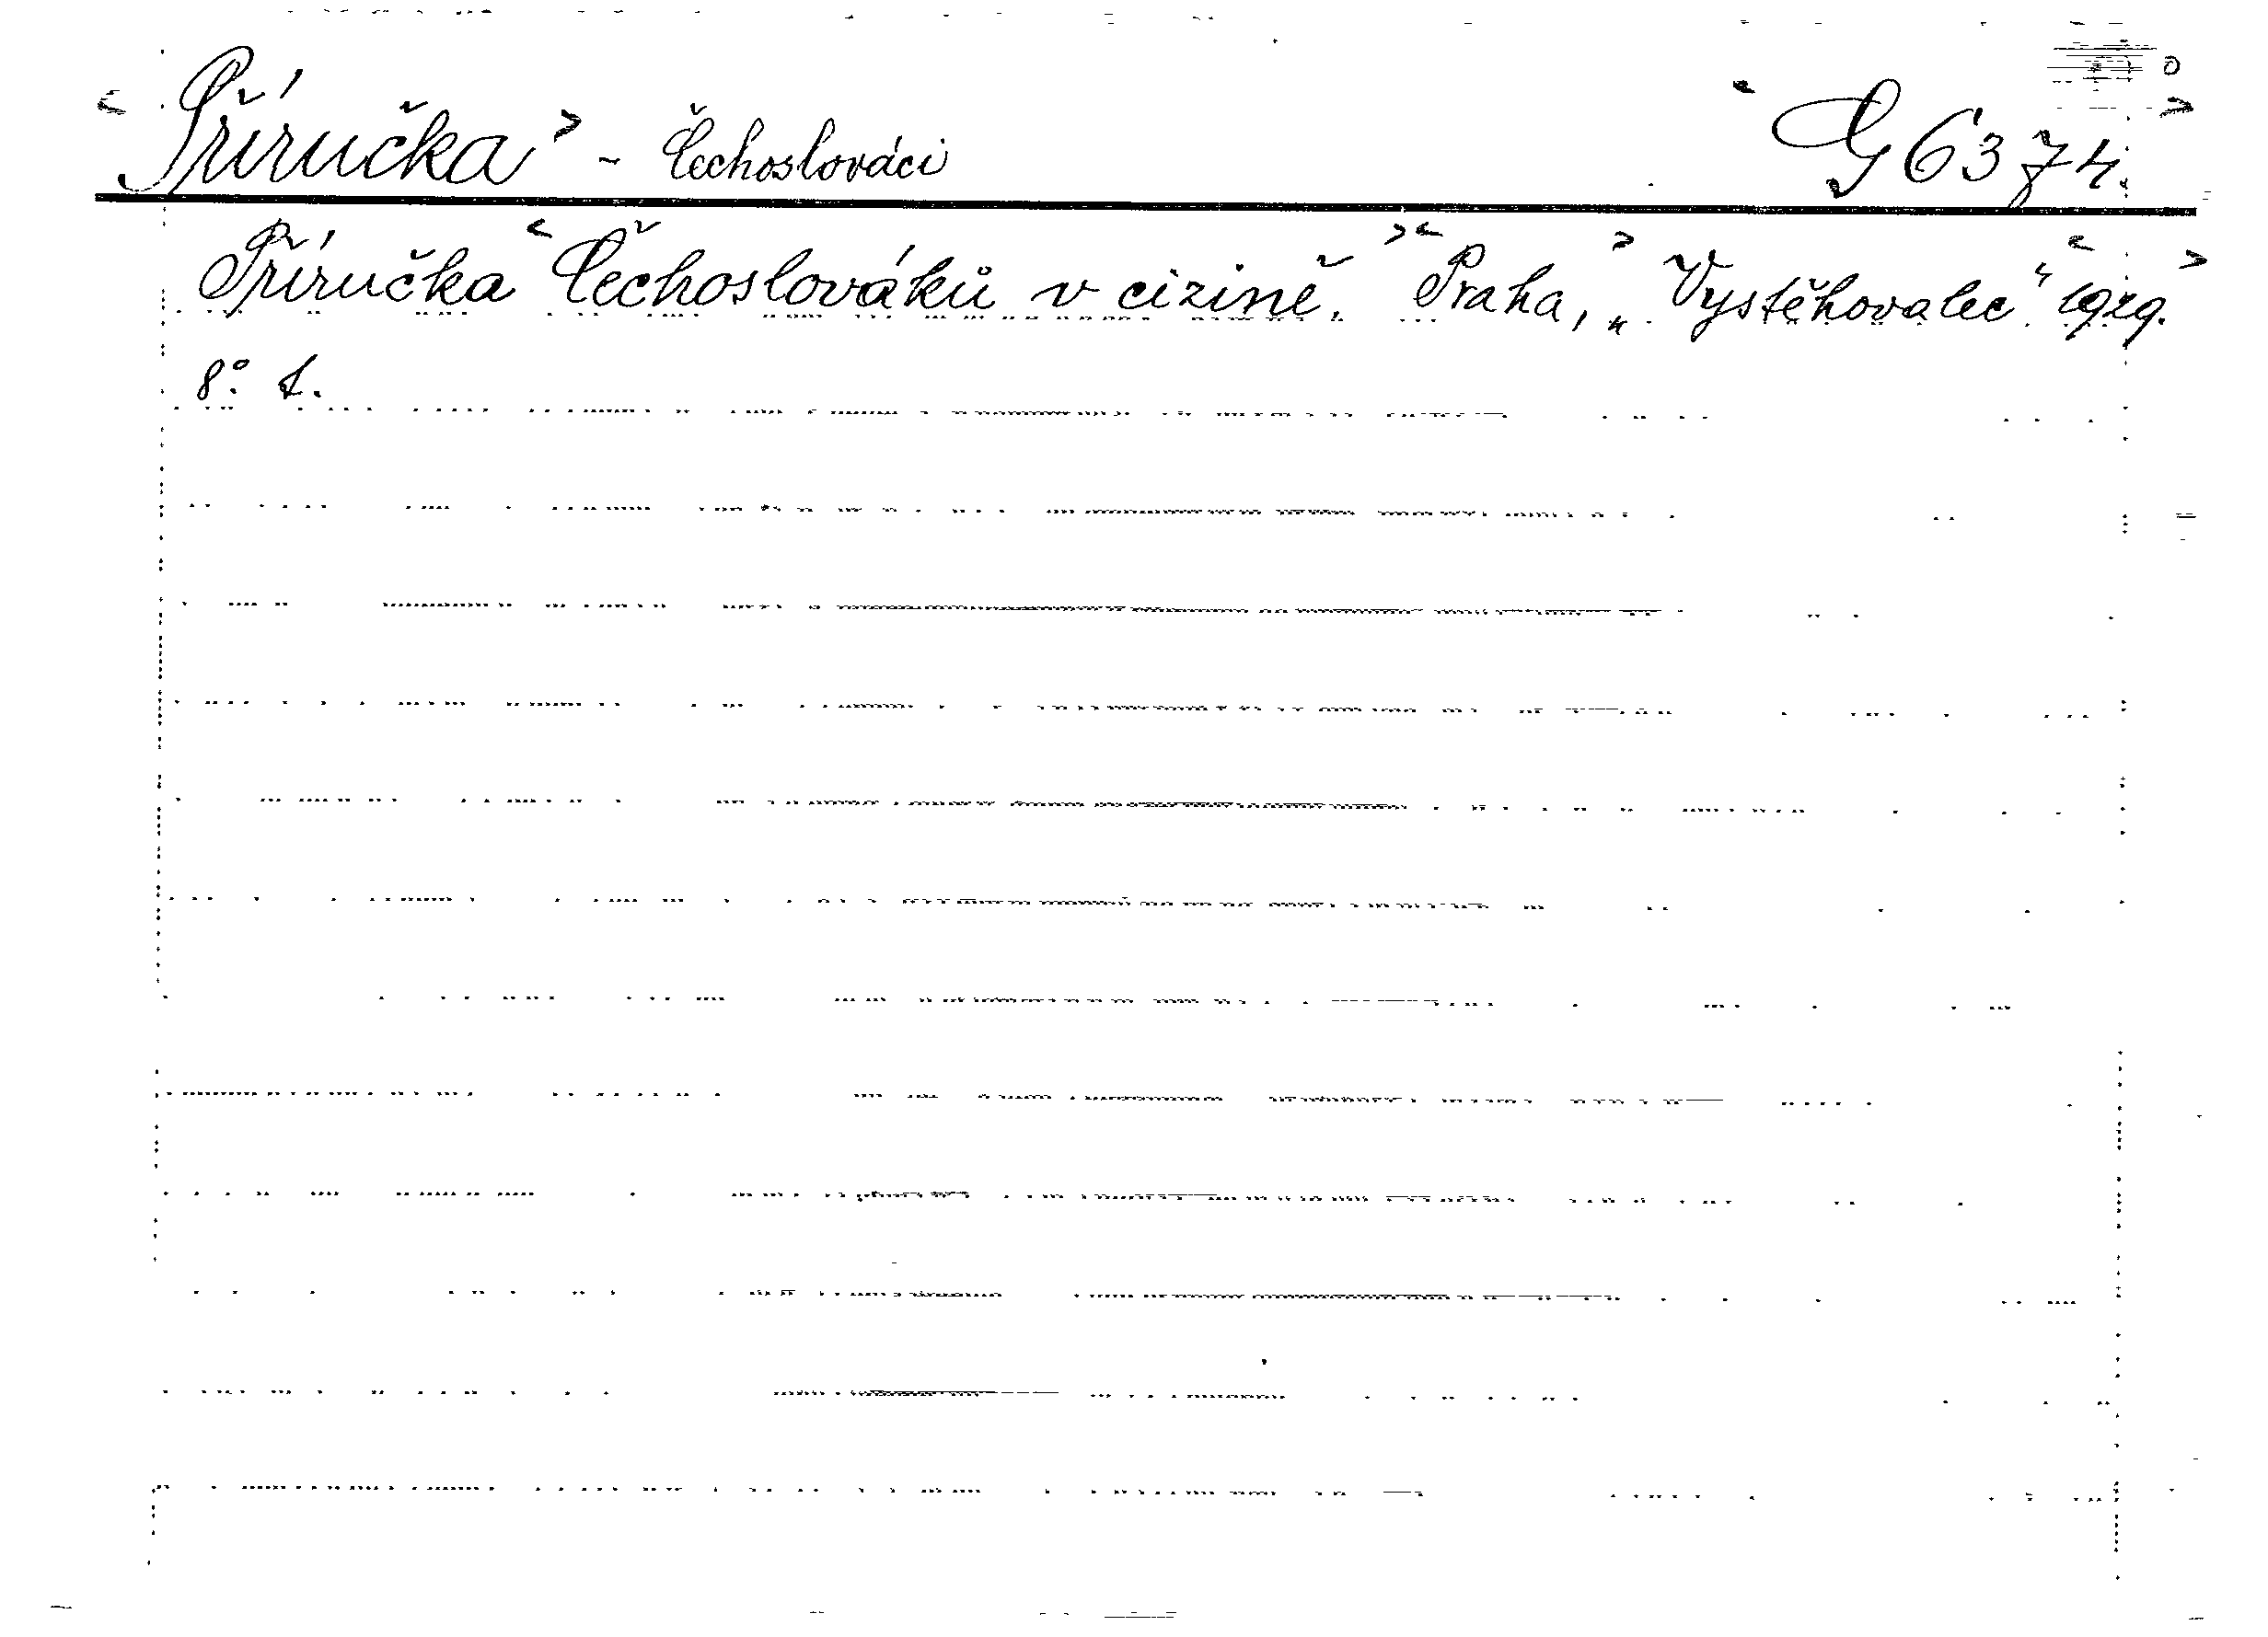 Příručka - Čechoslováci G 6374.
Příručka Čechoslováků v cizině. Praha, „Vystěhovalec“ 1929.
8° 1.